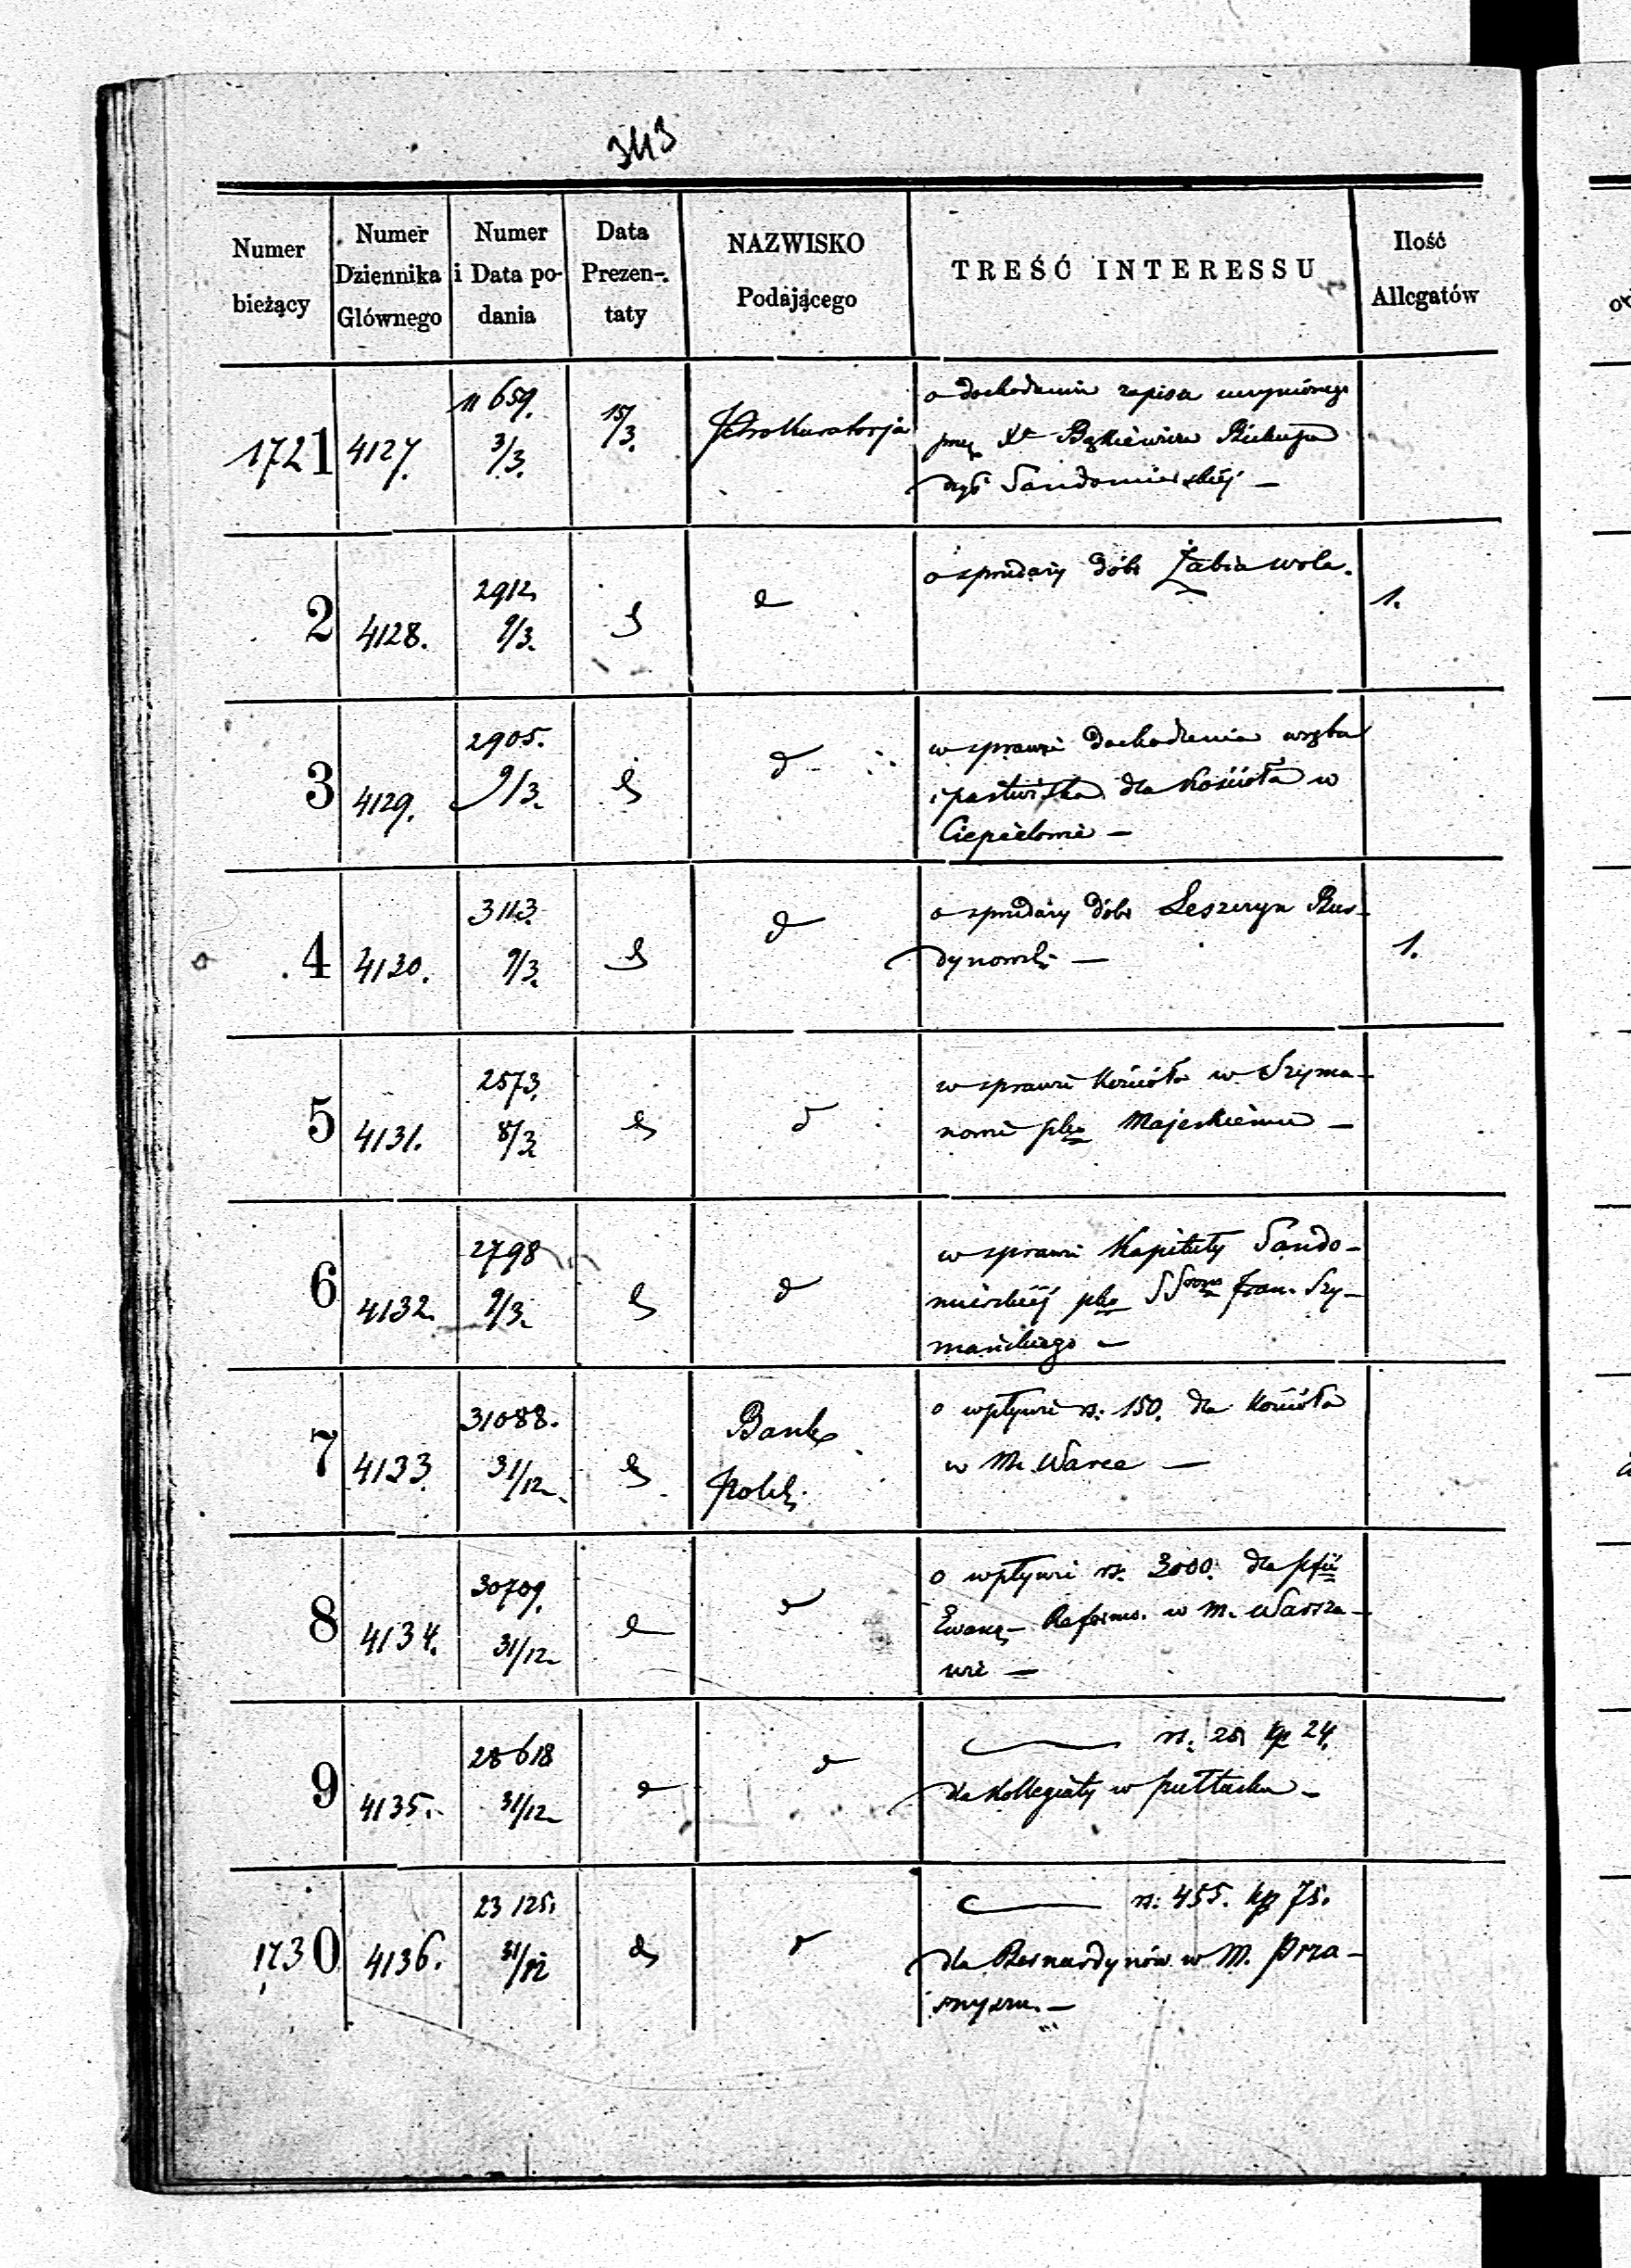 343
Numer bieżący
Numer Dziennika Głównego
Numer i Data podania
Data Prezentaty
NAZWISKO Podającego
TREŚĆ INTERESSU
Ilość Allegatów
1721 4127. 11659. 3/3. 15/3. Prokuratorja
o dochodzeniu zapisu uczynionego
przez Xa Bąkiewicza Biskupa
dyec Sandomierskiéj —
2 4128. 2912. 9/3. d
o sprzedaży dóbr Żabia wola. 1.
3 4129. 2905. 9/3. d d
w sprawie dochodzenia wrębu
i pastwiska dla Kościoła w
Ciepielowie —
4 4130. 3113. 9/3. d d
o sprzedaży dóbr Leszczyn Bur-
dynowsk. — 1.
5 4131. 2573. 8/3. d d
w sprawie Kościoła w Szyma-
nowie plko Majeskiemu —
6 4132. 2798 9/3. d d
w sprawie Kapituły Sando-
mierskiéj plko SSrom Fran. Szy-
mańskiego —
7 4133. 31088. 31/12. d Bank Polsk.
o wpływie rs. 150. dla Kościoła
w M. Warce —
8 4134. 30709. 31/12. d d
o wpływie rs. 3000. dla pfii
Ewang- Reform. w M. Warsza-
wie —
9 4135. 28618 31/12. d d
rs. 28 kp 24.
dla Kollegiaty w Pułtusku —
1730 4136. 23125. 31/12 d d
rs. 455. kp 75.
dla Bernardynów w M. Prza-
snyszu. —